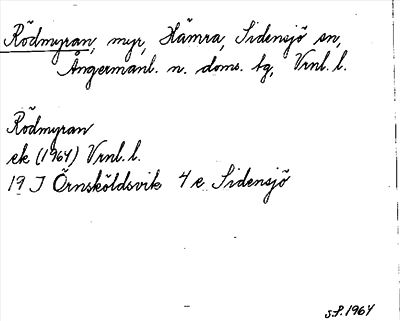 Rödmyran, myr, Hämra, Sidensjö sn,
Ångermanl. n. doms. tg, Vrnl. l.
Rödmyran
ek (1964) Vrnl. l.
19 J Örnsköldsvik 4 e Sidensjö
S.P. 1964